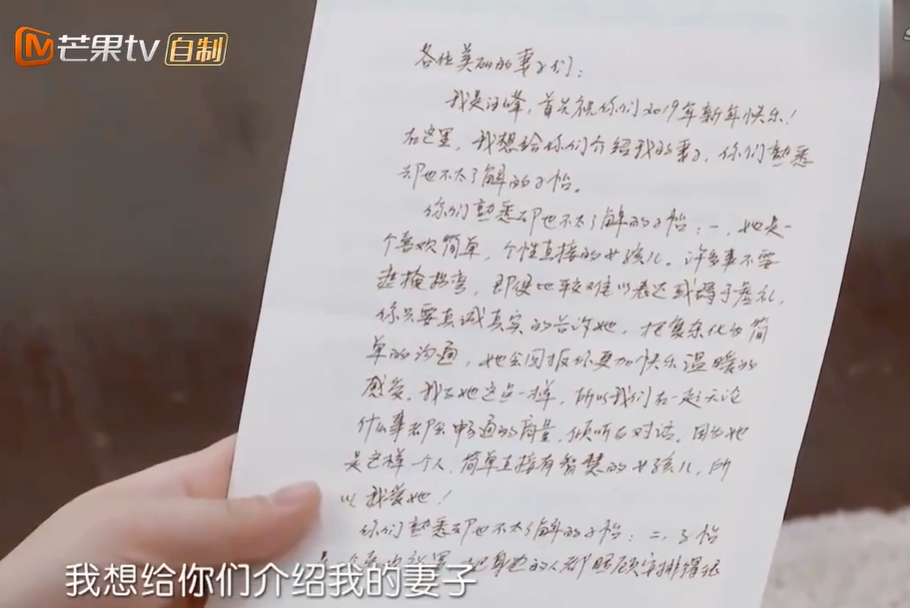 芒果tv 自制
各位英雄的妻子们：
我是汪峰，首先祝你们2019年新年快乐！
在这里，我想给你们介绍我的妻子，你们熟悉
却也不太了解的子怡。
你们熟悉却也不太了解的子怡：一，她是一
个喜欢简单，个性直接的女孩儿。许多事不要
遮掩拐弯，即便比较难以表达或碍于虚礼，
你只要真诚真实的告诉她，把复杂化为简
单的沟通，她会回报你更加快乐温暖的
感受。我和她这点一样，所以我们在一起无论
什么事都会畅通的商量，倾听与对话。因为她
是这样一个人，简单直接有智慧的女孩儿，所
以我爱她！
你们熟悉却也不太了解的子怡：二，子怡
身边的人都照顾安排得很
我想给你们介绍我的妻子